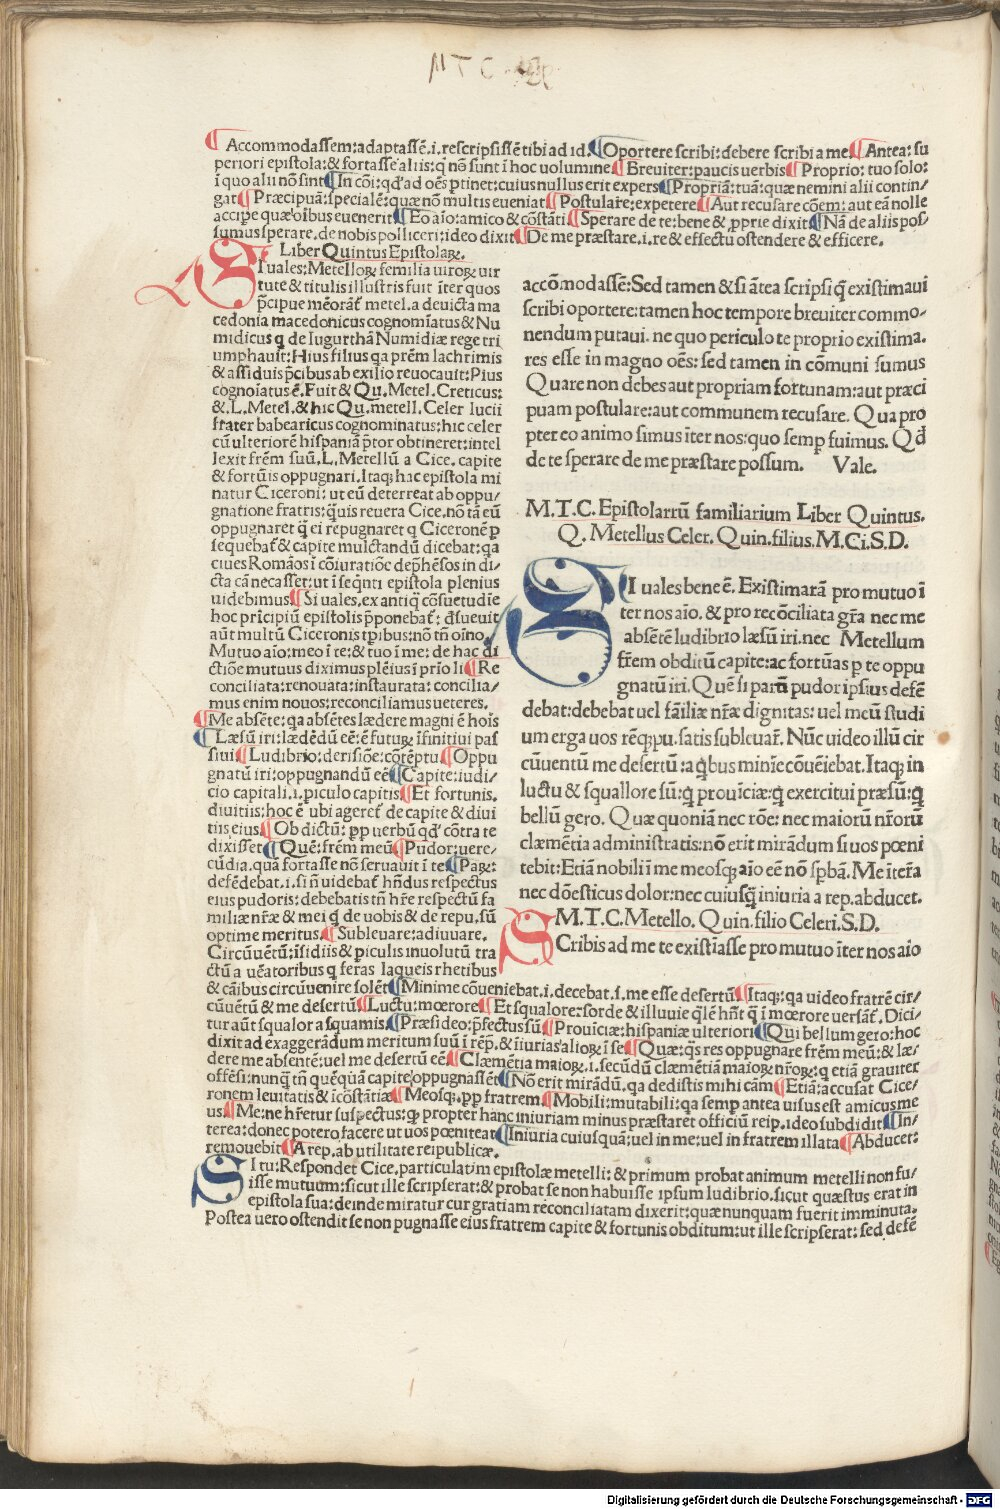 M T C
Accommodassem: adaptassē .i. rescripsissē tibi ad id. Oportere scribi: debere scribi a me. Antea: su
periori epistola: & fortasse aliis: q nō sunt i hoc uolumine Breuiter: paucis uerbis Proprio: tuo solo:
ī quo alii nō sint In cōi: qđ ad oēs ptinet: cuius nullus erit expers Propriā: tuā: quæ nemini alii contin/
gat Præcipuā: specialē: quæ nō multis eueniat Postulare: expetere Aut recusare cōem: aut eā nolle
accipe quæ oībus euenerit Eo aīo: amico & cōstāti Sperare de te: bene & pprie dixit Nā de aliis pos/
sumus sperare. de nobis polliceri: ideo dixit De me præstare .i. re & effectu ostendere & efficere.
accōmodassē: Sed tamen & si ātea scripsi q̄ existimaui
scribi oportere: tamen hoc tempore breuiter commo/
nendum putaui. ne quo periculo te proprio existima.
res esse in magno oēs: sed tamen in cōmuni sumus
Quare non debes aut propriam fortunam: aut præci
puam postulare: aut communem recusare. Qua pro
pter eo animo simus īter nos: quo semp fuimus. Qđ
de te sperare de me præstare possum. Vale.
M.T.C. Epistolarrū familiarium Liber Quintus.
Q. Metellus Celer. Quin. filius. M. Ci. S.D.
SI uales bene ē. Existimarā pro mutuo ī
ter nos aīo. & pro recōciliata grā nec me
absētē ludibrio læsū iri. nec Metellum
frēm obditū capite: ac fortūas p te oppu
gnatū iri. Quē si parū pudor ipsius defē
debat: debebat uel fāiliæ nræ dignitas: uel meū studi
um erga uos rēqpu. satis subleuar̄. Nūc uideo illū cir
cūuentū me desertū: a qbus minīe cōueiebat. Itaq; in
luctu & squallore sū: q prouīciæ: q exercitui præsū: q
bellū gero. Quæ quoniā nec rōe: nec maiorū nrorū
clæmētia administratis: nō erit mirādum si uos pœni
tebit: Etiā nobili ī me meosq; aīo eē nō spbā. Me iterā
nec dōesticus dolor: nec cuiusq iniuria a rep. abducet.
M.T.C. Metello. Quin. filio Celeri. S.D.
SCribis ad me te existīasse pro mutuo īter nos aīo
Liber Quintus Epistolaꝝ.
SI uales: Metelloꝝ femilia uiroꝝ uir
tute & titulis illustris fuit īter quos
pcipue meōrat̄ metel. a deuicta ma
cedonia macedonicus cognomīatus & Nu
midicus q de Iugurthā Numidiæ rege tri
umphauit: Hius filius qa prēm lachrimis
& assiduis pcibus ab exilio reuocauit: Pius
cognoīatus ē. Fuit & Qu. Metel. Creticus:
& .L. Metel. & hic Qu. metell. Celer lucii
frater babearicus cognominatus: hic celer
cū ulteriorē hispaniā ptor obtineret: intel
lexit frēm suū .L. Metellū a Cice. capite
& fortūis oppugnari. Itaq; hac epistola mi
natur Ciceroni: ut eū deterreat ab oppu/
gnatione fratris: qmuis reuera Cice. nō tā eū
oppugnaret q ei repugnaret q Ciceronē p
sequebat̄ & capite mulctandū dicebat: qa
ciues Romāos ī cōiuratiōe dephēsos in di/
cta cā necasset: ut ī seqnti epistola plenius
uidebimus. Si uales, ex antiq cōsuetudīe
hoc prīcipiū epistolis pponebat̄: dsueuit
aūt multū Ciceronis tpibus: nō tn̄ oīno.
Mutuo aīo: meo ī te: & tuo ī me: de hac di
ctiōe mutuus diximus plēius ī prīo li Re
conciliata: renouata: instaurata: concilia/
mus enim nouos: reconciliamus ueteres.
Me absēte: qa absētes lædere magni ē hoīs
Læsū iri: lædēdū eē: ē futurꝝ īfinitiui pas
siui Ludibrio: derisiōe: cōtēptu Oppu
gnatū iri: oppugnandū eē Capite: iudi/
cio capitali .i. piculo capitis Et fortunis.
diuitiis: hoc ē ubi ageret̄ de capite & diui
tiis eius. Ob dictū: pp uerbū qđ cōtra te
dixisset Quē: frēm meū Pudor: uere/
cūdia. quā fortasse nō seruauit ī te Parꝝ:
defēdebat .i. si n uidebat̄ hndus respectus
eius pudoris: debebatis tn̄ hre respectū fa
miliæ nræ & mei q de uobis & de repu. sū
optime meritus. Subleuare: adiuuare.
Circūuētū: īsidiis & piculis inuolutū tra
ctū a uēatoribus q feras laqueis rhetibus
& cāibus circūuenire solēt Minime cōueniebat .i. decebat .s. me esse desertū Itaq; qa uideo fratrē cir/
cūuētū & me desertū Luctu: mœrore Et squalore: sorde & illuuie qlē hn̄t q ī mœrore uersāt̄. Dici/
tur aūt squalor a squamis. Præsideo: pfectus sū Prouīciæ: hispaniæ ulteriori Qui bellum gero: hoc
dixit ad exaggerādum meritum suū ī rep. & īiurias alioꝝ ī se Quæ: qs res oppugnare frēm meū: & læ/
dere me absentē: uel me desertū eē Clæmētia maioꝝ .i. secūdū clæmētiā maioꝝ nroꝝ: q etiā grauiter
offēsi: nunq tn̄ quēquā capite oppugnassēt Nō erit mirādū. qa dedistis mihi cām Etiā: accusat Cice/
ronem leuitatis & īcōstātiæ Meosq; pp fratrem. Mobili: mutabili: qa semp antea uisus est amicus me
us. Me: ne hretur suspectus: q propter hanc iniuriam minus præstaret officiū reip. ideo subdidit In/
terea: donec potero facere ut uos pœniteat Iniuria cuiusquā: uel in me: uel in fratrem illata Abducet:
remouebit A rep. ab utilitate reipublicæ.
SI tu: Respondet Cice. particulatim epistolæ metelli: & primum probat animum metelli non fu/
isse mutuum: sicut ille scripserat: & probat se non habuisse ipsum ludibrio. sicut quæstus erat in
epistola sua: deinde miratur cur gratiam reconciliatam dixerit: quæ nunquam fuerit imminuta.
Postea uero ostendit se non pugnasse eius fratrem capite & fortunis obditum: ut ille scripserat: sed defē
Digitalisierung gefördert durch die Deutsche Forschungsgemeinschaft - DFG